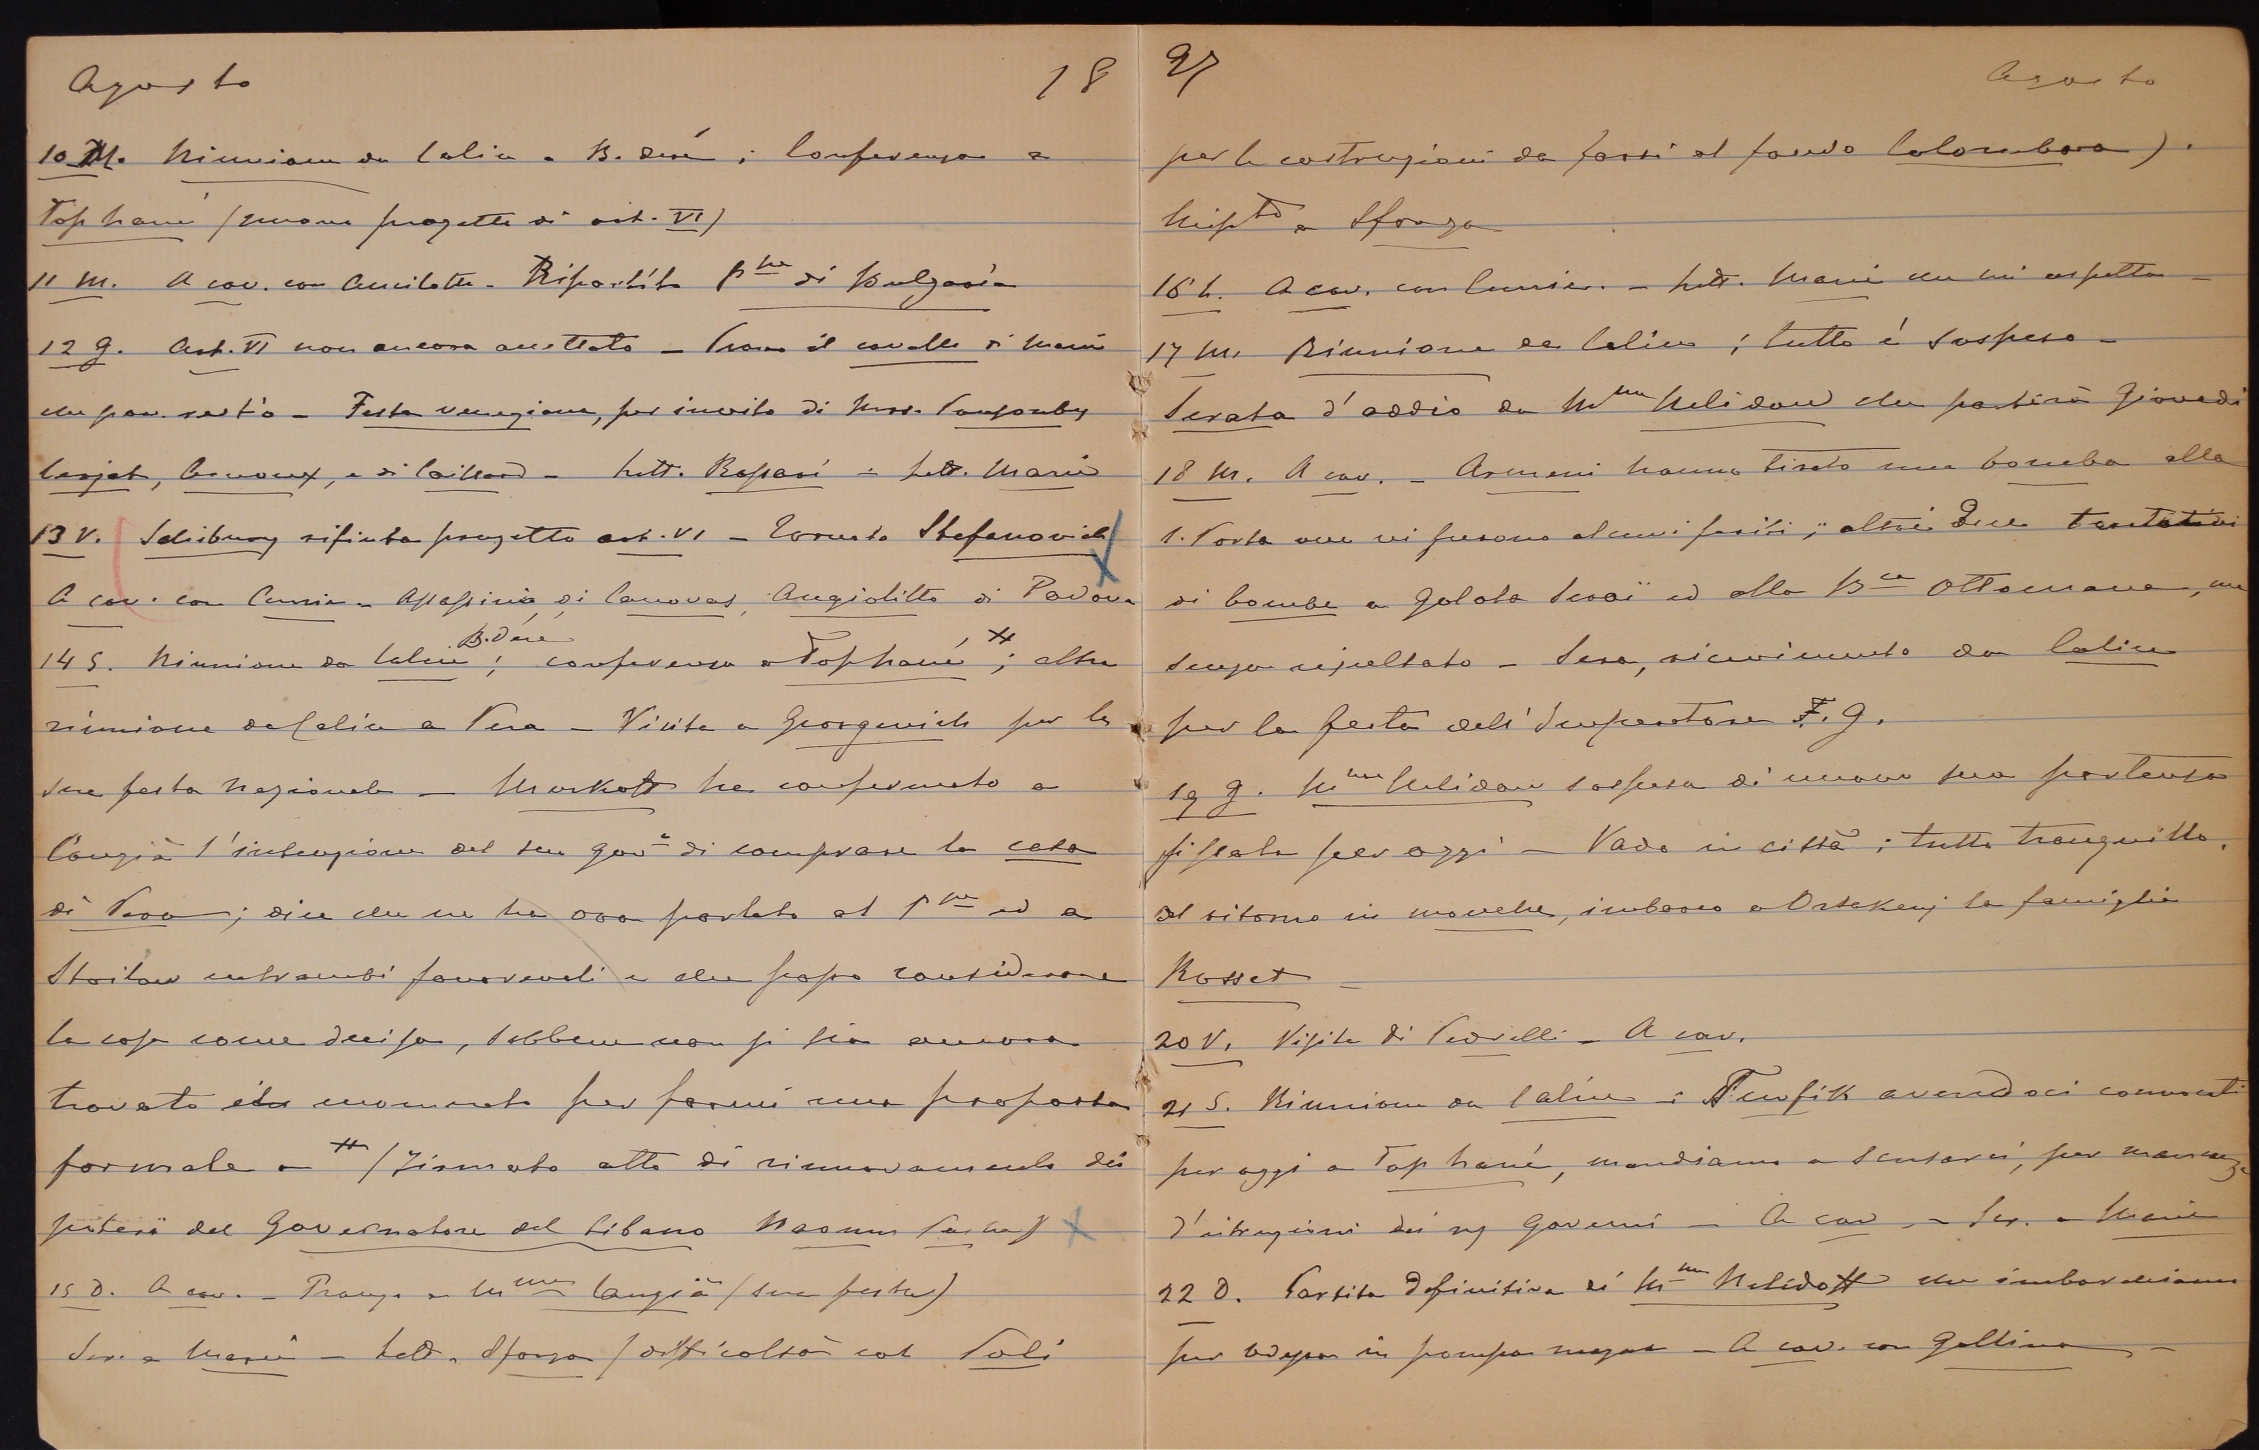 Agosto 18
10 M. Riunione da Calice a B. deré ; Conferenza a
Tophané (nuovo progetto di art. VI)
11 M. A cav. con Ancilotto - Ripartito P.pe di Bulgaria
12 G. Art. VI non ancora accettato - Provo il cavallo di Marié
che pare restio - Festa veneziana, per invito di Mrs. Ponsonby
Larjat, Arnoux, e di Caillard - Lett. Rossari - Lett. Marie
13 V. Salisbury rifiuta progetto art. VI - Tornato Stefanovich
A cav. con Cunie - Assassinio di Canovas, Angiolitto di Padova
14 S. Riunione da Calice B. Déré ; conferenza a Tophané # ; altra
riunione da Calice a Pera - Visita a Georgevich per la
sua festa nazionale - Markoff ha confermato a
Cangià l'intenzione del suo gov.o di comprare la casa
di Pera ; dice che ne ha ora parlato al P.pe ed a
Stoilow entrambi favorevoli e che posso considerare
la cosa come decisa, sebbene non si sia ancora
trovato il momento per farmi una proposta
formale - # (Firmato atto di rinnovamento dei
poteri del Governatore del Libano Naoum Pacha)
15 D. A cav. - Pranzo a Mme Cangià (sua festa)
Scr. a Marié - Lett. Sforza (difficoltà col Poli
97 Agosto
per le costruzioni da farsi al fondo Colombara).
Risp.to a Sforza
16 L. A cav. con Cunie. - Lett. Marié che mi aspetta -
17 M. Riunione da Calice ; tutto è sospeso -
Serata d'addio da Mme Nelidow che partirà Giovedì
18 M. A cav. - Armeni hanno tirato una bomba alla
S. Porta ove vi furono alcuni feriti ; altri due tentativi
di bombe a Galata Seraï ed alla B.ca Ottomana, ma
senza risultato - Sera, ricevimento da Calice
per la festa dell'Imperatore F. G.
19 G. Mme Nelidow sospesa di nuovo sua partenza
fissata per oggi - Vado in città ; tutto tranquillo.
al ritorno in mouche, imbarco a Ortakeuj la famiglia
Rosset -
20 V. Visita di Pedrelli - A cav.
21 S. Riunione da Calice : Tewfik avendoci convocati
per oggi a Tophané, mandiamo a scusarci, per mancanza
d'istruzioni dei ns Governi - A cav - Scr. a Marie
22 D. Partita definitiva di Mme Nelidoff che imbarchiamo
per Odessa in pompa magna - A cav. con Gallina -